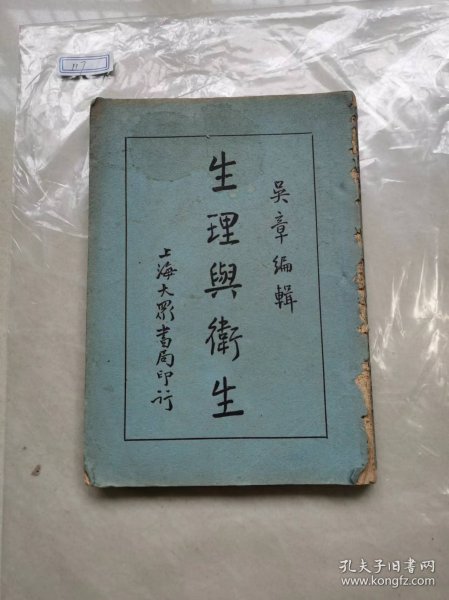 吴章編輯
生理與衛生
上海大眾書局印行
117
孔夫子旧书网
www.kongfz.com